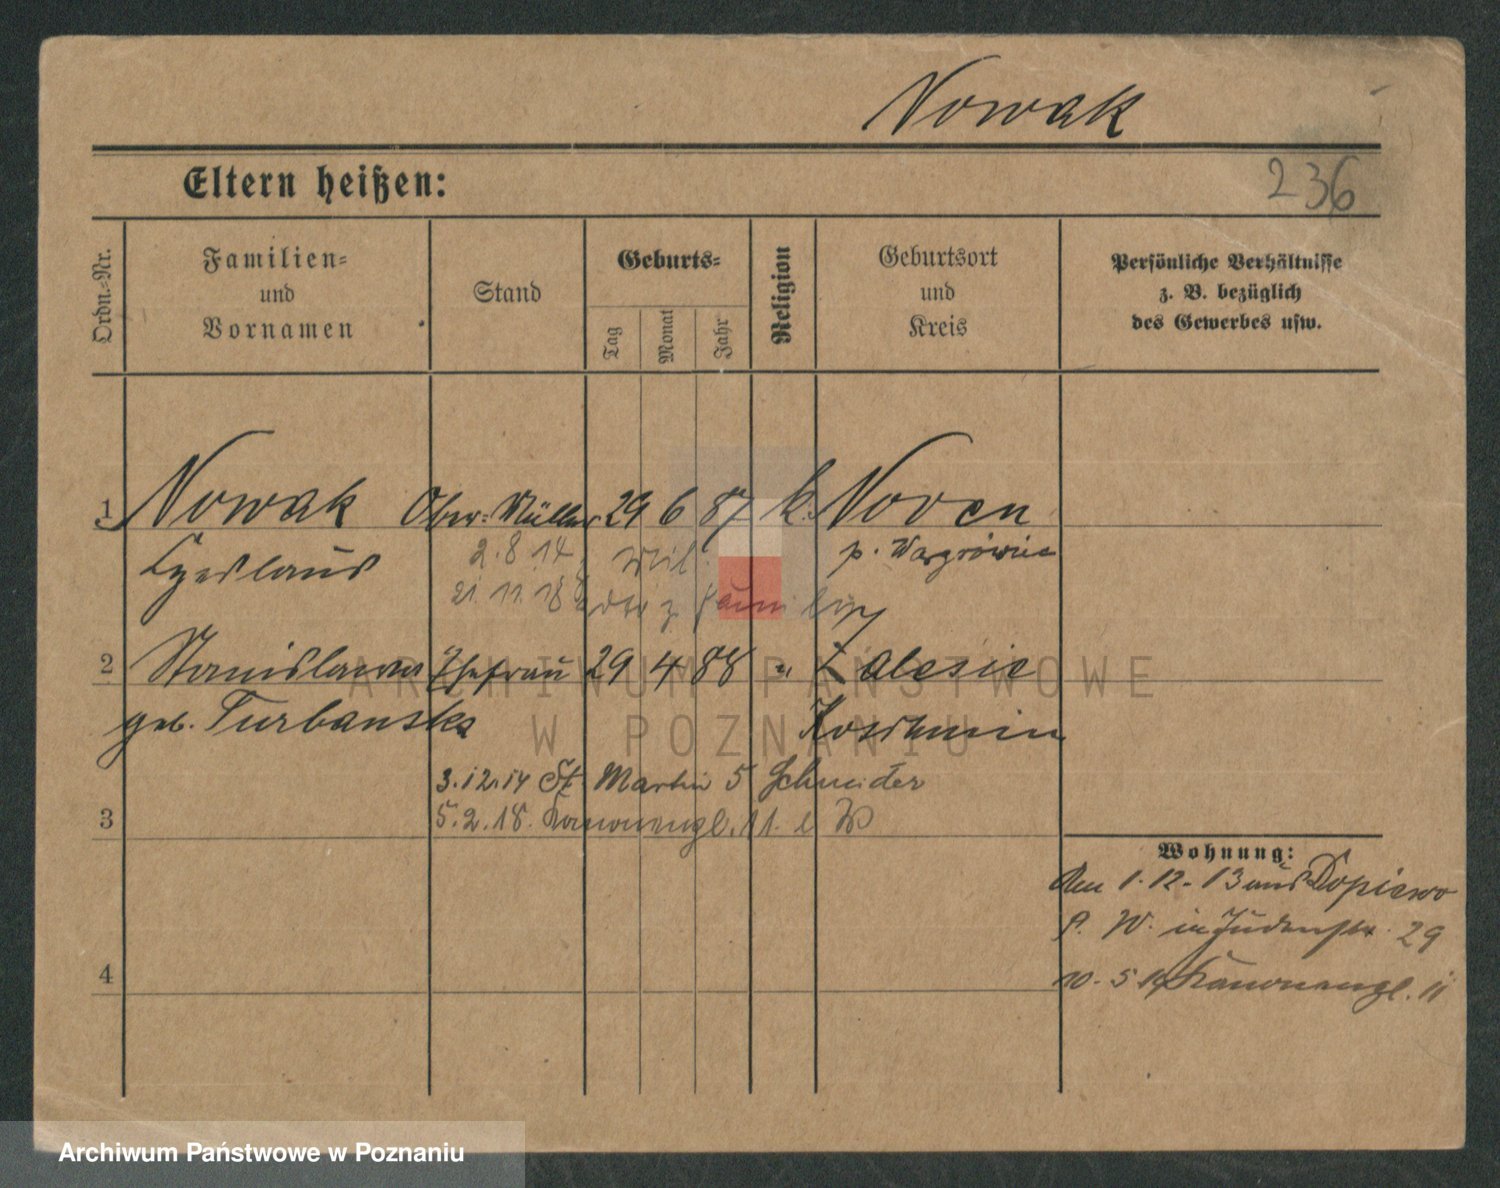 Nowak
236
Eltern heißen:
Ordn.-Nr.
Familien-
und
Vornamen
Stand
Geburts-
Tag
Monat
Jahr
Religion
Geburtsort
und
Kreis
Persönliche Verhältnisse
z. B. bezüglich
des Gewerbes usw.
1 Nowak Ober-Müller 29 6 87 k. Noven
Czeslaus 2.8.14 Mil. p. Wagrówiec
21.11.18 z
2 Stanislawa Ehefrau 29 4 88 " Zalesie
geb. Turbanska Koschmin
3.12.14 St. Martin 5 Schneider
3 5.2.18. Kanonengl. 11.
Wohnung:
Den 1.12.13 aus Dopiewo
P. W. in Judenstr. 29
4 Kanonengl. 11
ARCHIWUM PAŃSTWOWE
W POZNANIU
Archiwum Państwowe w Poznaniu